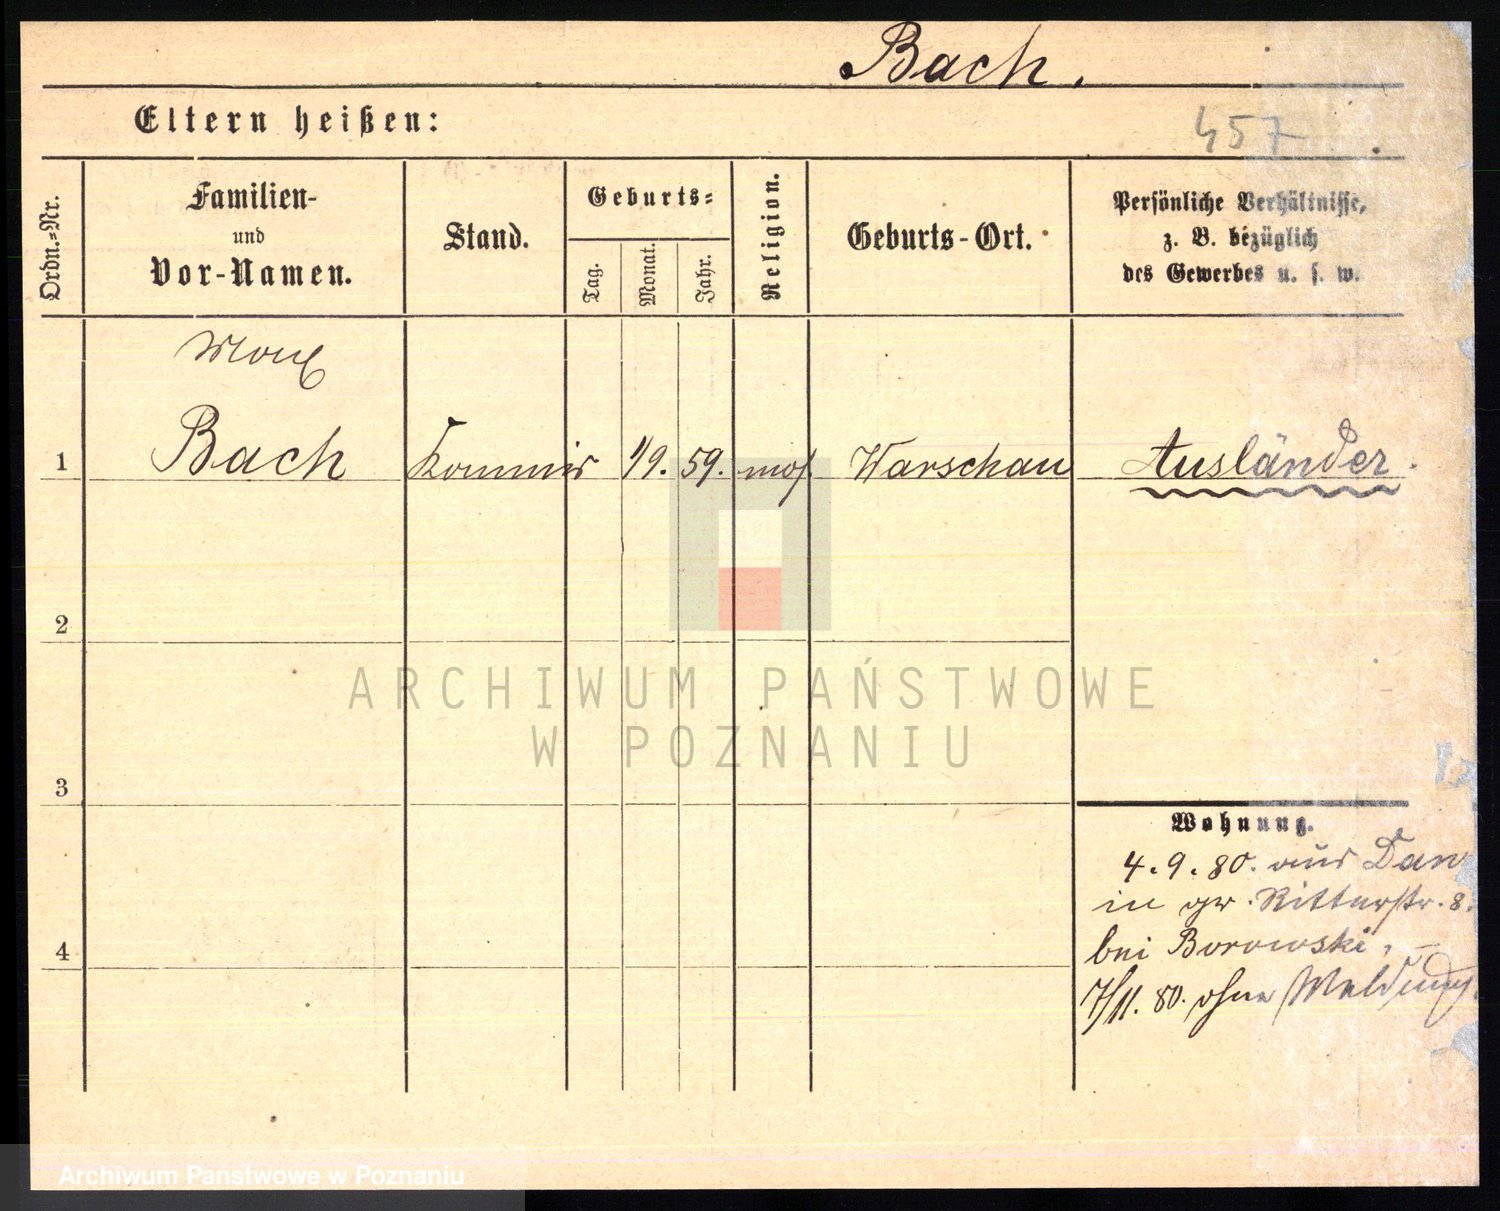 Bach.
Eltern heißen:
457
Ordn.=Nr.
Familien-
und
Vor-Namen.
Stand.
Geburts=
Tag.
Monat.
Jahr.
Religion.
Geburts-Ort.
Persönliche Verhältnisse,
z. B. bezüglich
des Gewerbes u. s. w.
Max
1 Bach Kommis 1/9. 59. mos Warschau Ausländer.
2
3
4
Wohnung.
4. 9. 80. aus
in gr. Ritterstr. 8.
bei Borowski,
7/11. 80. ohne Meldung.
ARCHIWUM PAŃSTWOWE
W POZNANIU
Archiwum Państwowe w Poznaniu